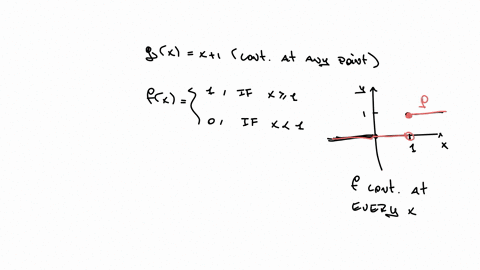 g(x) = x+1 (cont. at any point)
f(x) = { 1, IF x ≥ 1
0, IF x < 1
y
f
1
1
x
f cont. at
EVERY x